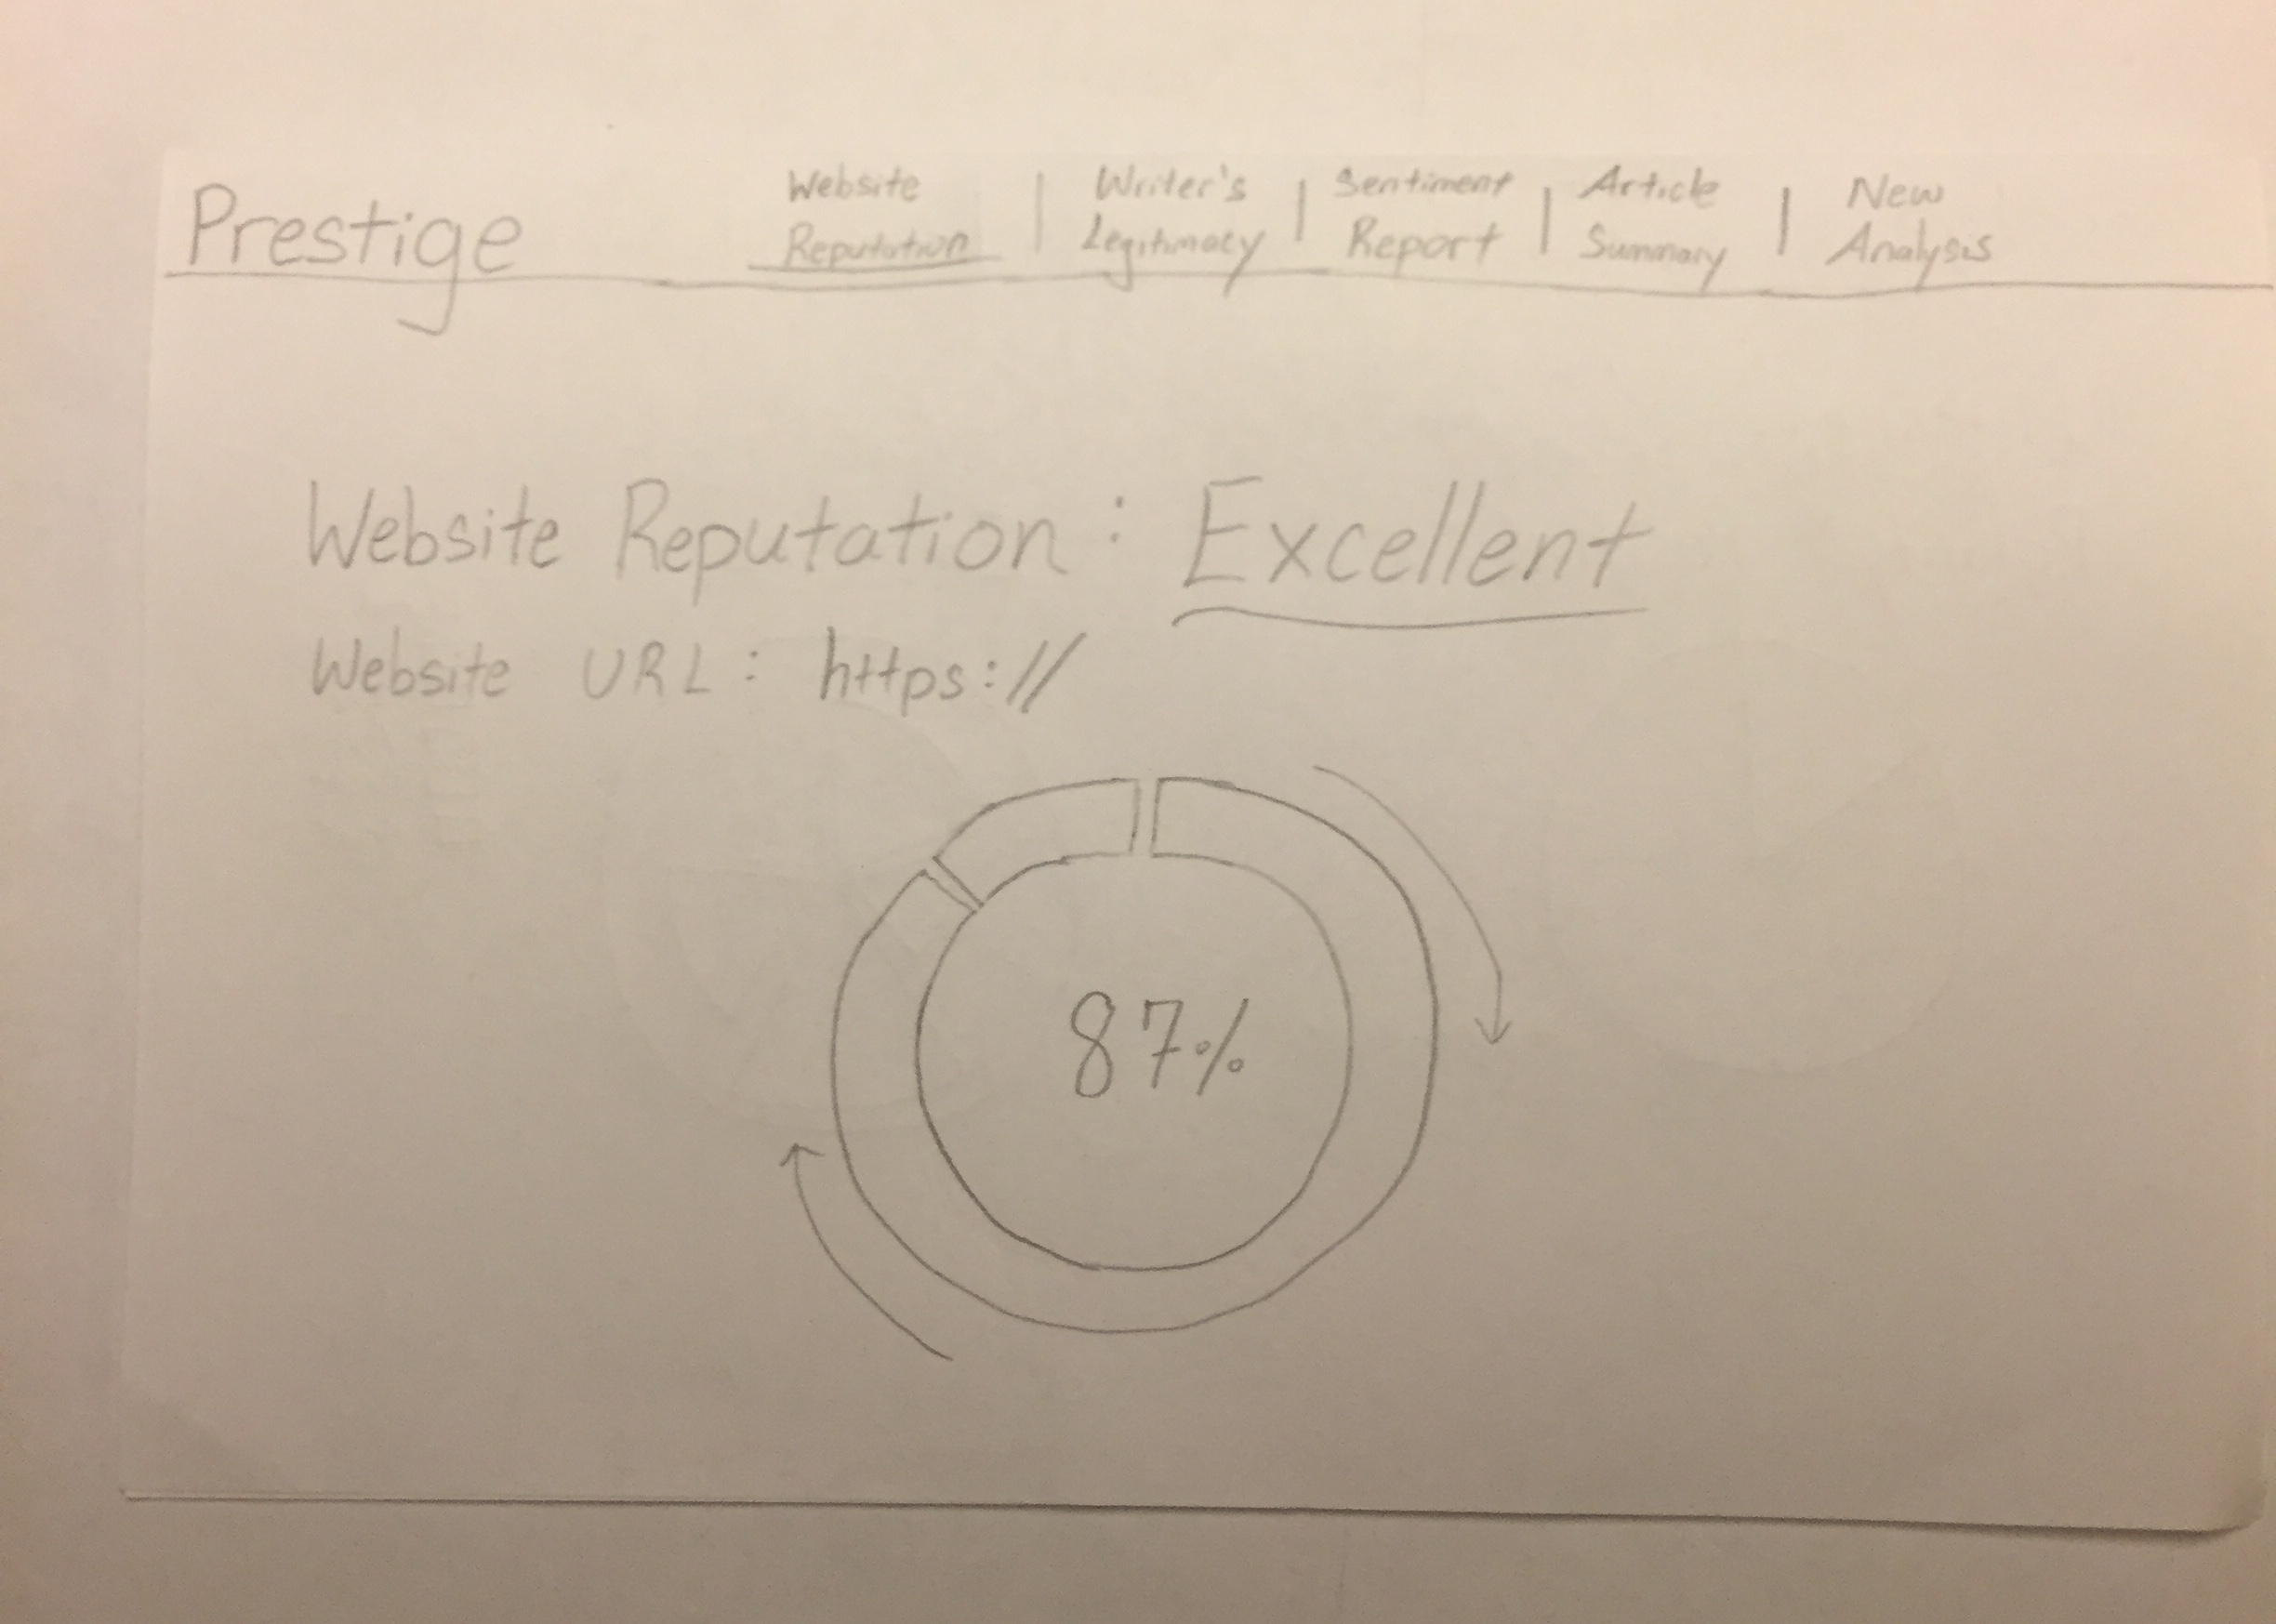 Prestige
Website Reputation | Writer's Legitimacy | Sentiment Report | Article Summary | New Analysis
Website Reputation: Excellent
Website URL: https://
87%